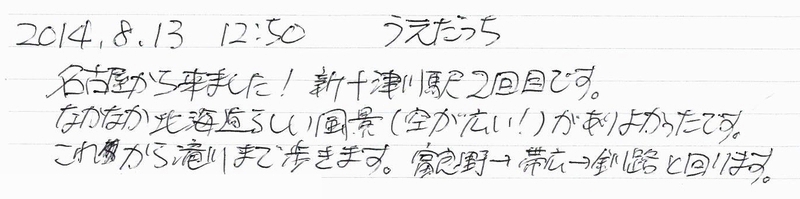 2014.8.13 12:50 うえだっち
名古屋から来ました! 新十津川駅2回目です。
なかなか北海道らしい風景(空が広い!)がありよかったです。
これから滝川まで歩きます。富良野→帯広→釧路と回ります。